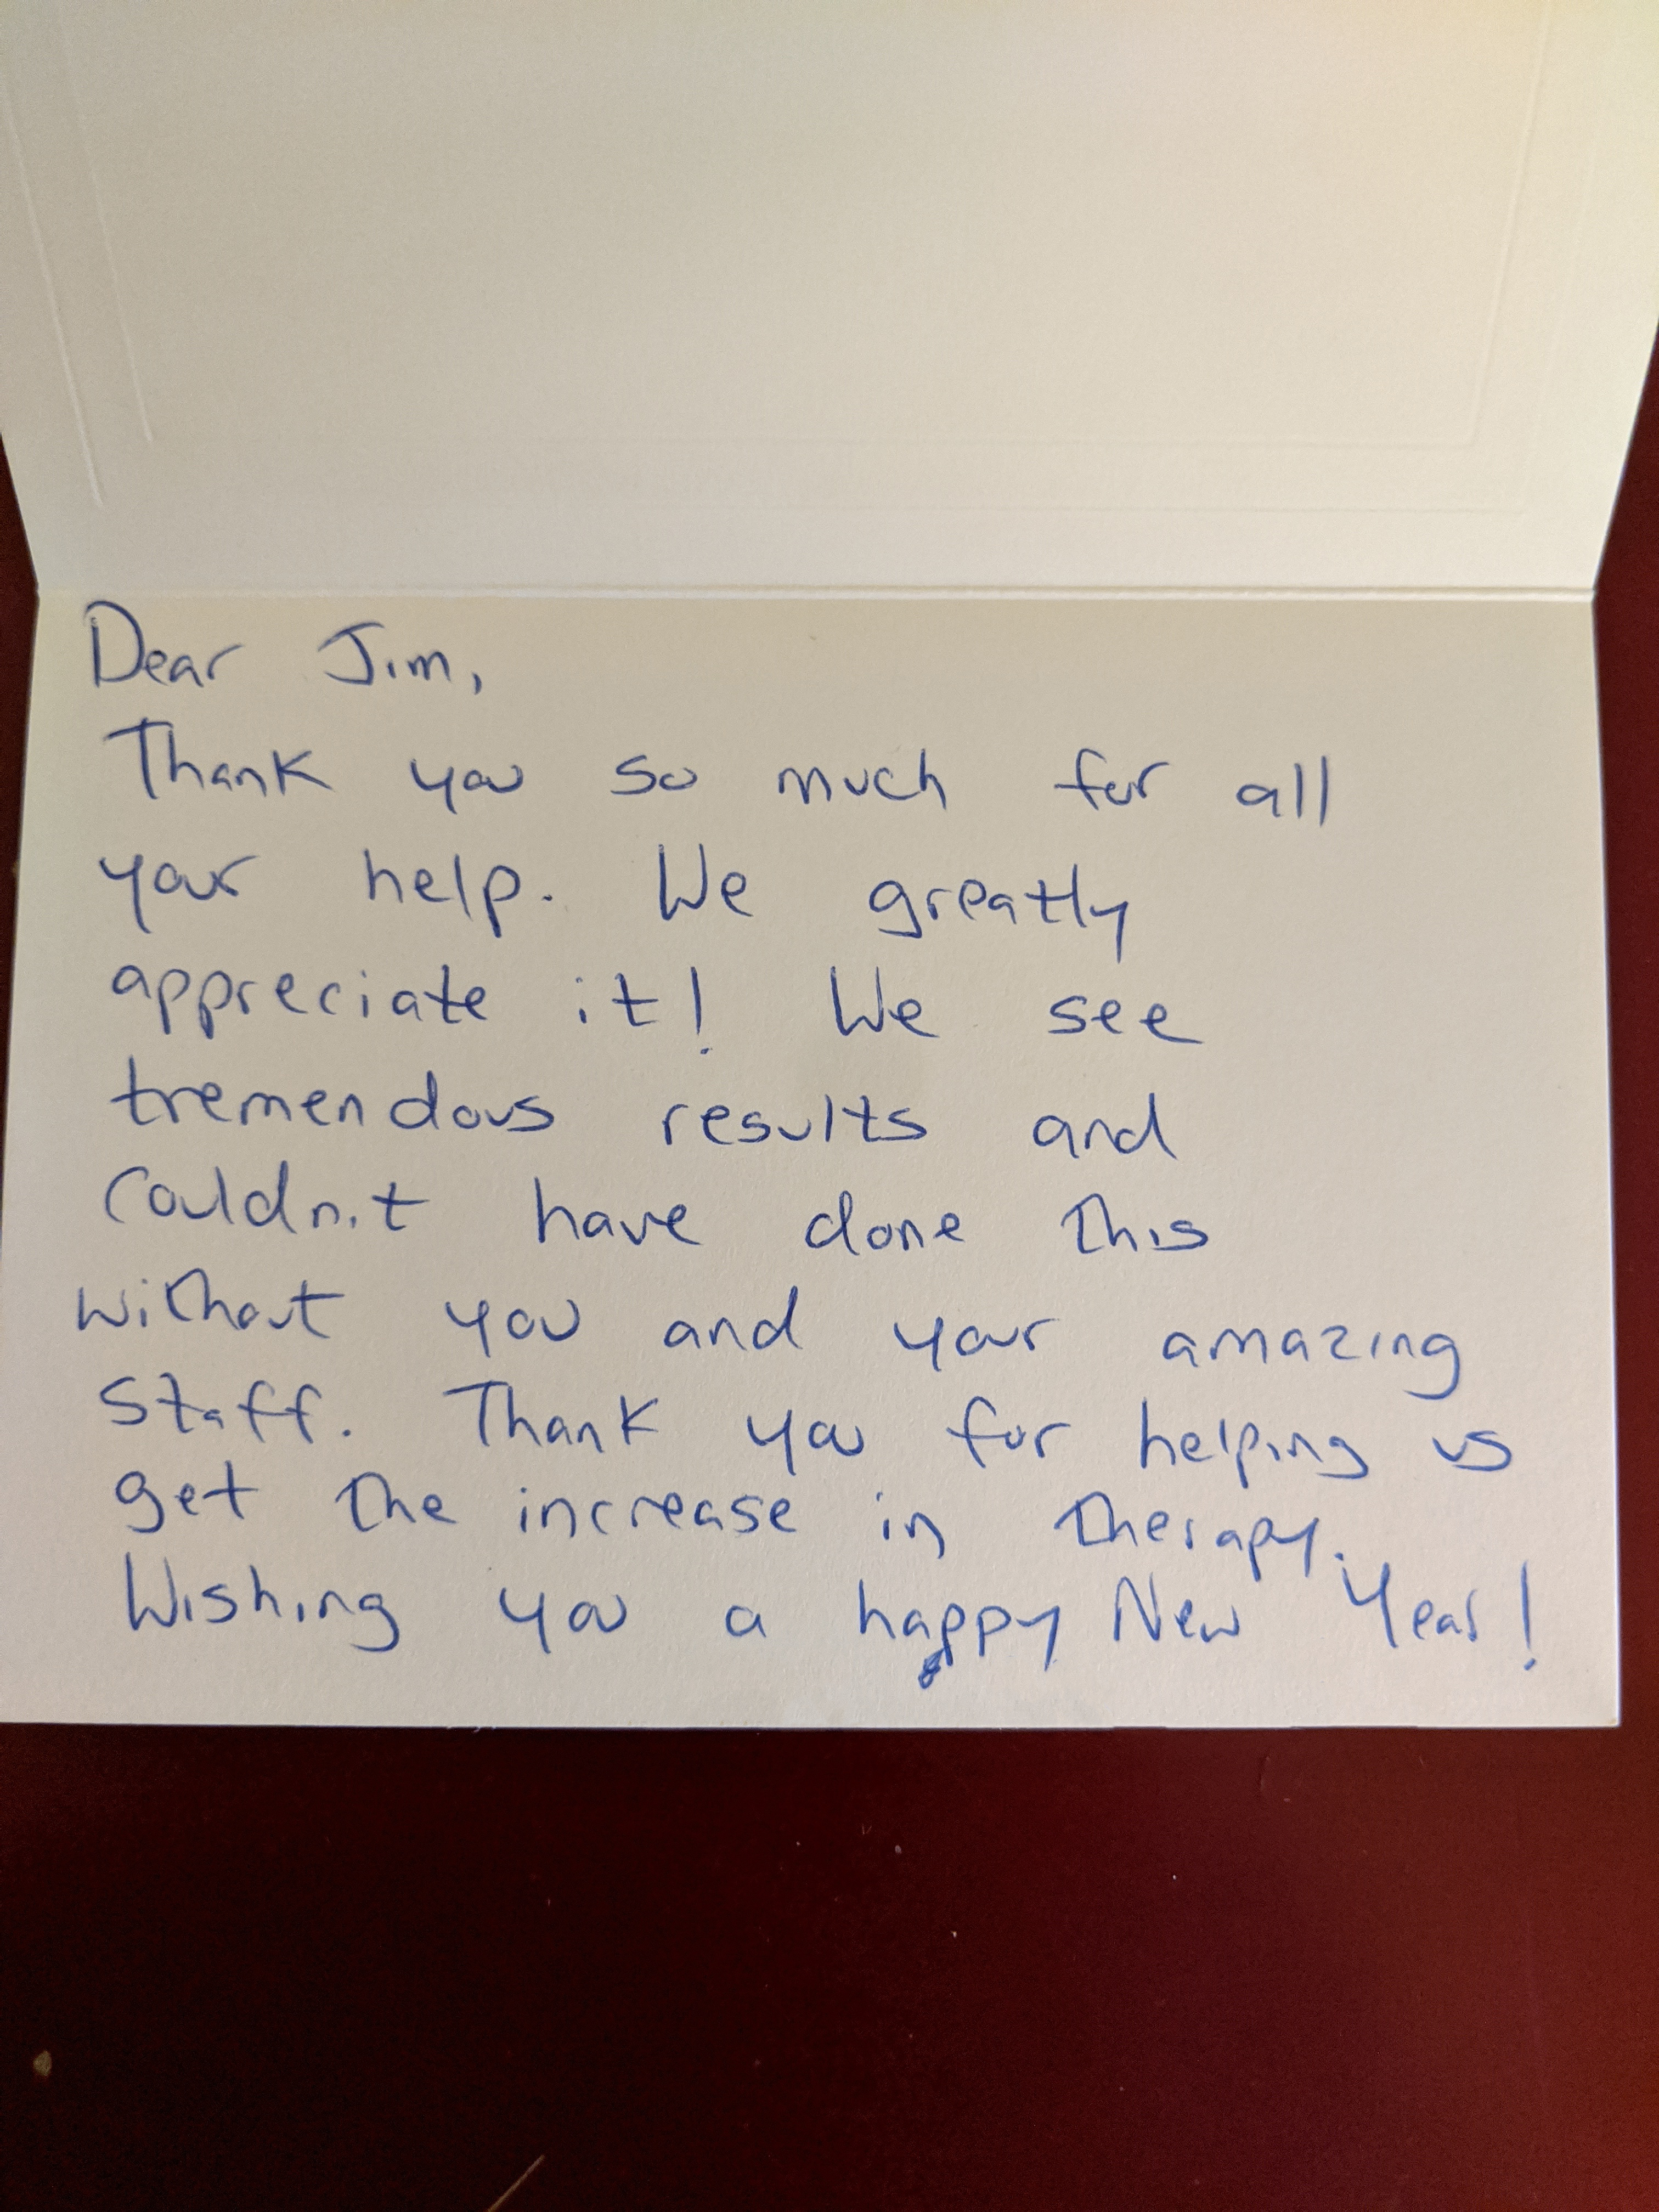 Dear Jim,
Thank you so much for all
your help. We greatly
appreciate it! We see
tremendous results and
couldn't have done this
without you and your amazing
staff. Thank you for helping us
get the increase in therapy.
Wishing you a happy New Year!